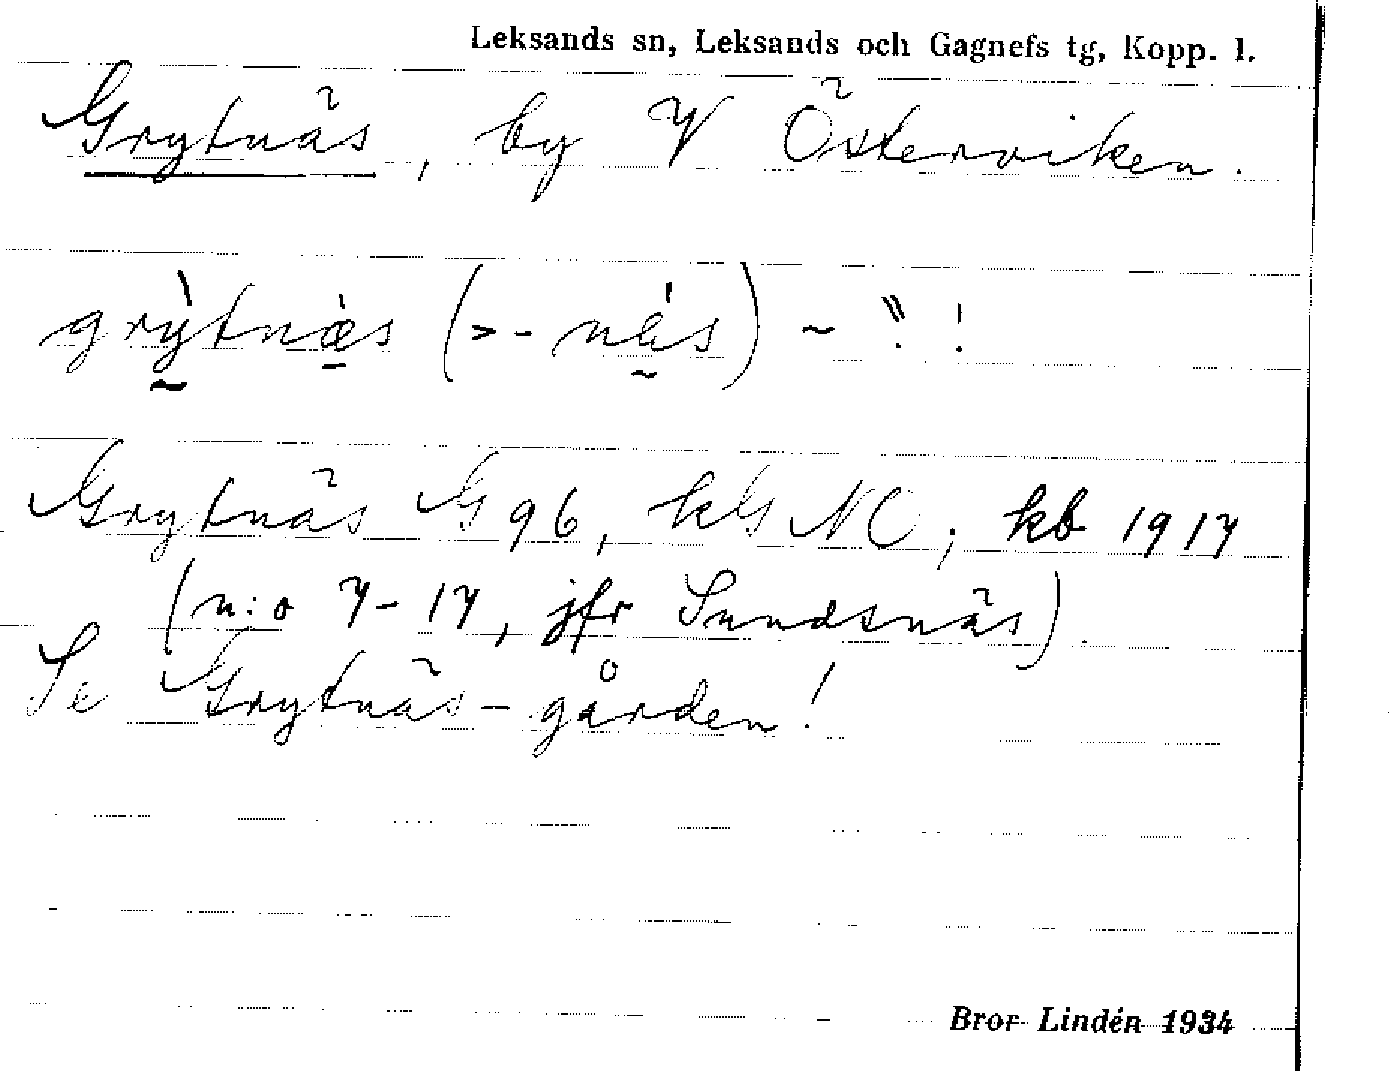 Leksands sn, Leksands och Gagnefs tg, Kopp. l.
Grytnäs, by V Österviken.
grỳtnæ̀s (>-nǽs) ~ `` !
Grytnäs G 96, kG NO; kb 1917
(n:o 7-17, jfr Sundsnäs)
Se Grytnäs-gården!
Bror Lindén 1934